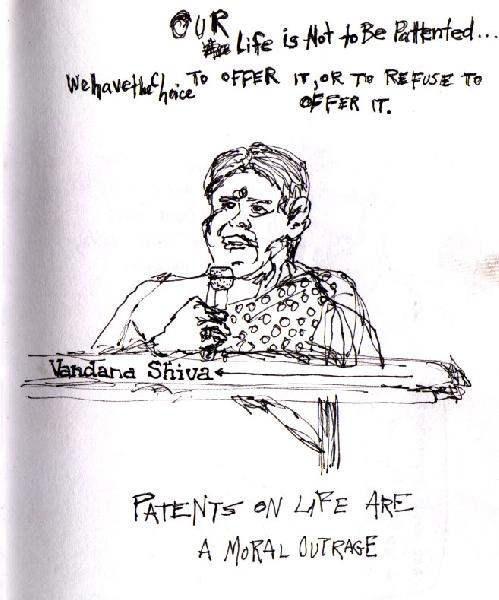 OUR
Life is Not to Be Pattented...
We have the Choice TO OFFER IT, OR TO REFUSE TO
OFFER IT.
Vandana Shiva
PATENTS ON LIFE ARE
A MORAL OUTRAGE